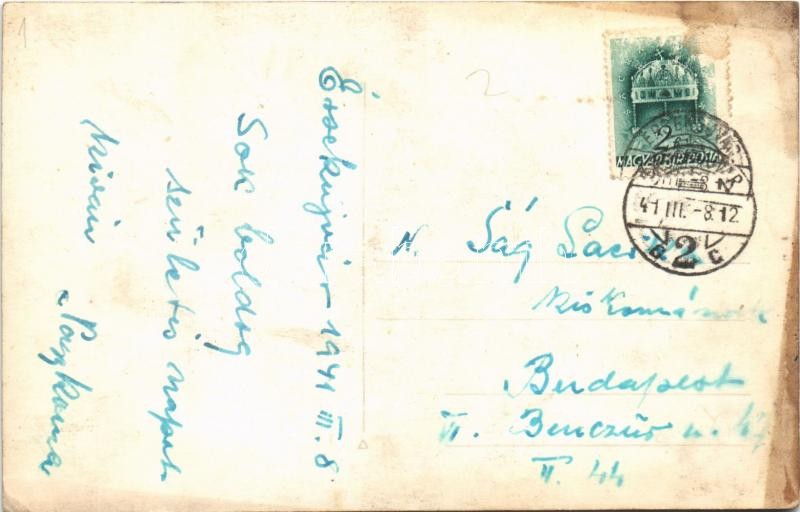 Érsekujvár 1941 III. 8.
Sok boldog
születés napot
kíván Nagymama
N. Ság Laci
kiskomának
Budapest
VI. Benczúr u. 47
II. 44
2
MAGYAR KIR. POSTA
ÉRSEKUJVÁR
41 III. -8. 12
2
C
1
2